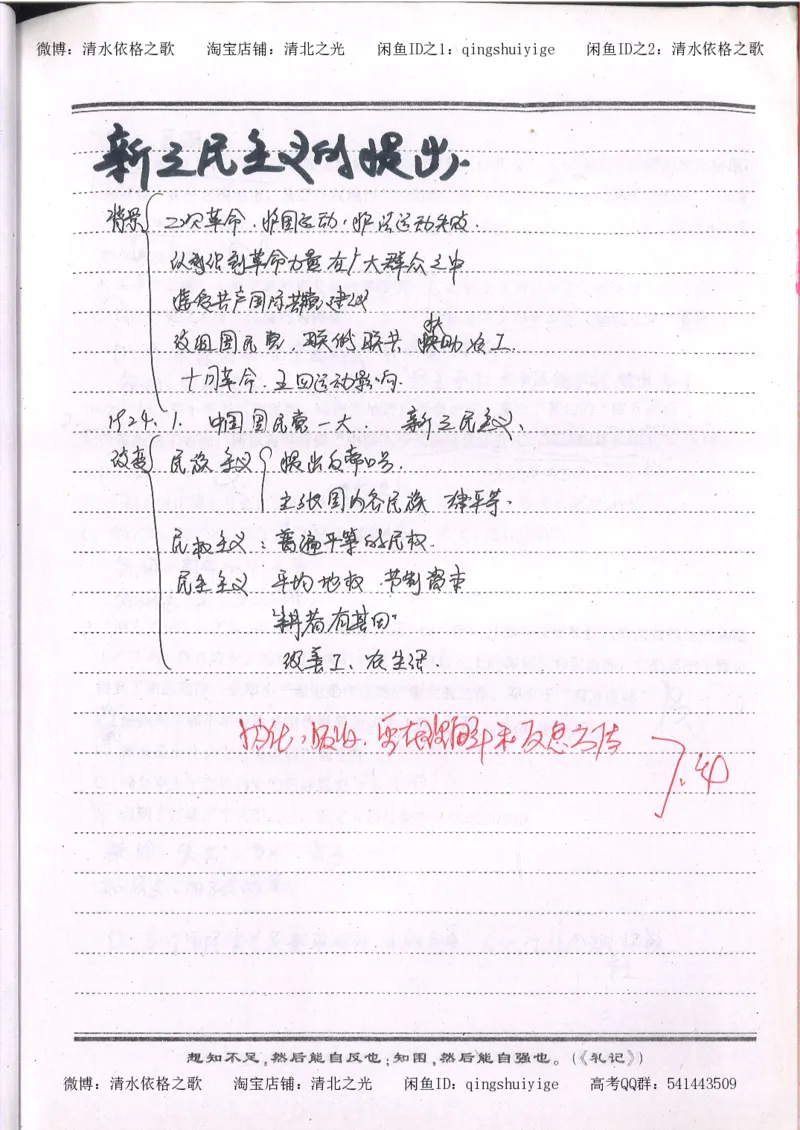 微博：清水依格之歌 淘宝店铺：清北之光 闲鱼ID之1：qingshuiyige 闲鱼ID之2：清水依格之歌
新三民主义的提出
背景 二次革命、护国运动、护法运动失败.
认识到革命力量在广大群众之中
接受共产国际 建议
改组国民党，联俄联共 扶助农工.
十月革命.五四运动影响.
1924.1. 中国国民党一大. 新三民主义、
改变 民族主义 提出反帝口号.
主张国内各民族 律平等.
民权主义：普遍平等的民权.
民生主义 平均地权 节制资本
"耕者有其田"
改善工、农生活.
反思方法
想知不足，然后能自反也；知困，然后能自强也。(《礼记》)
微博：清水依格之歌 淘宝店铺：清北之光 闲鱼ID：qingshuiyige 高考QQ群：541443509